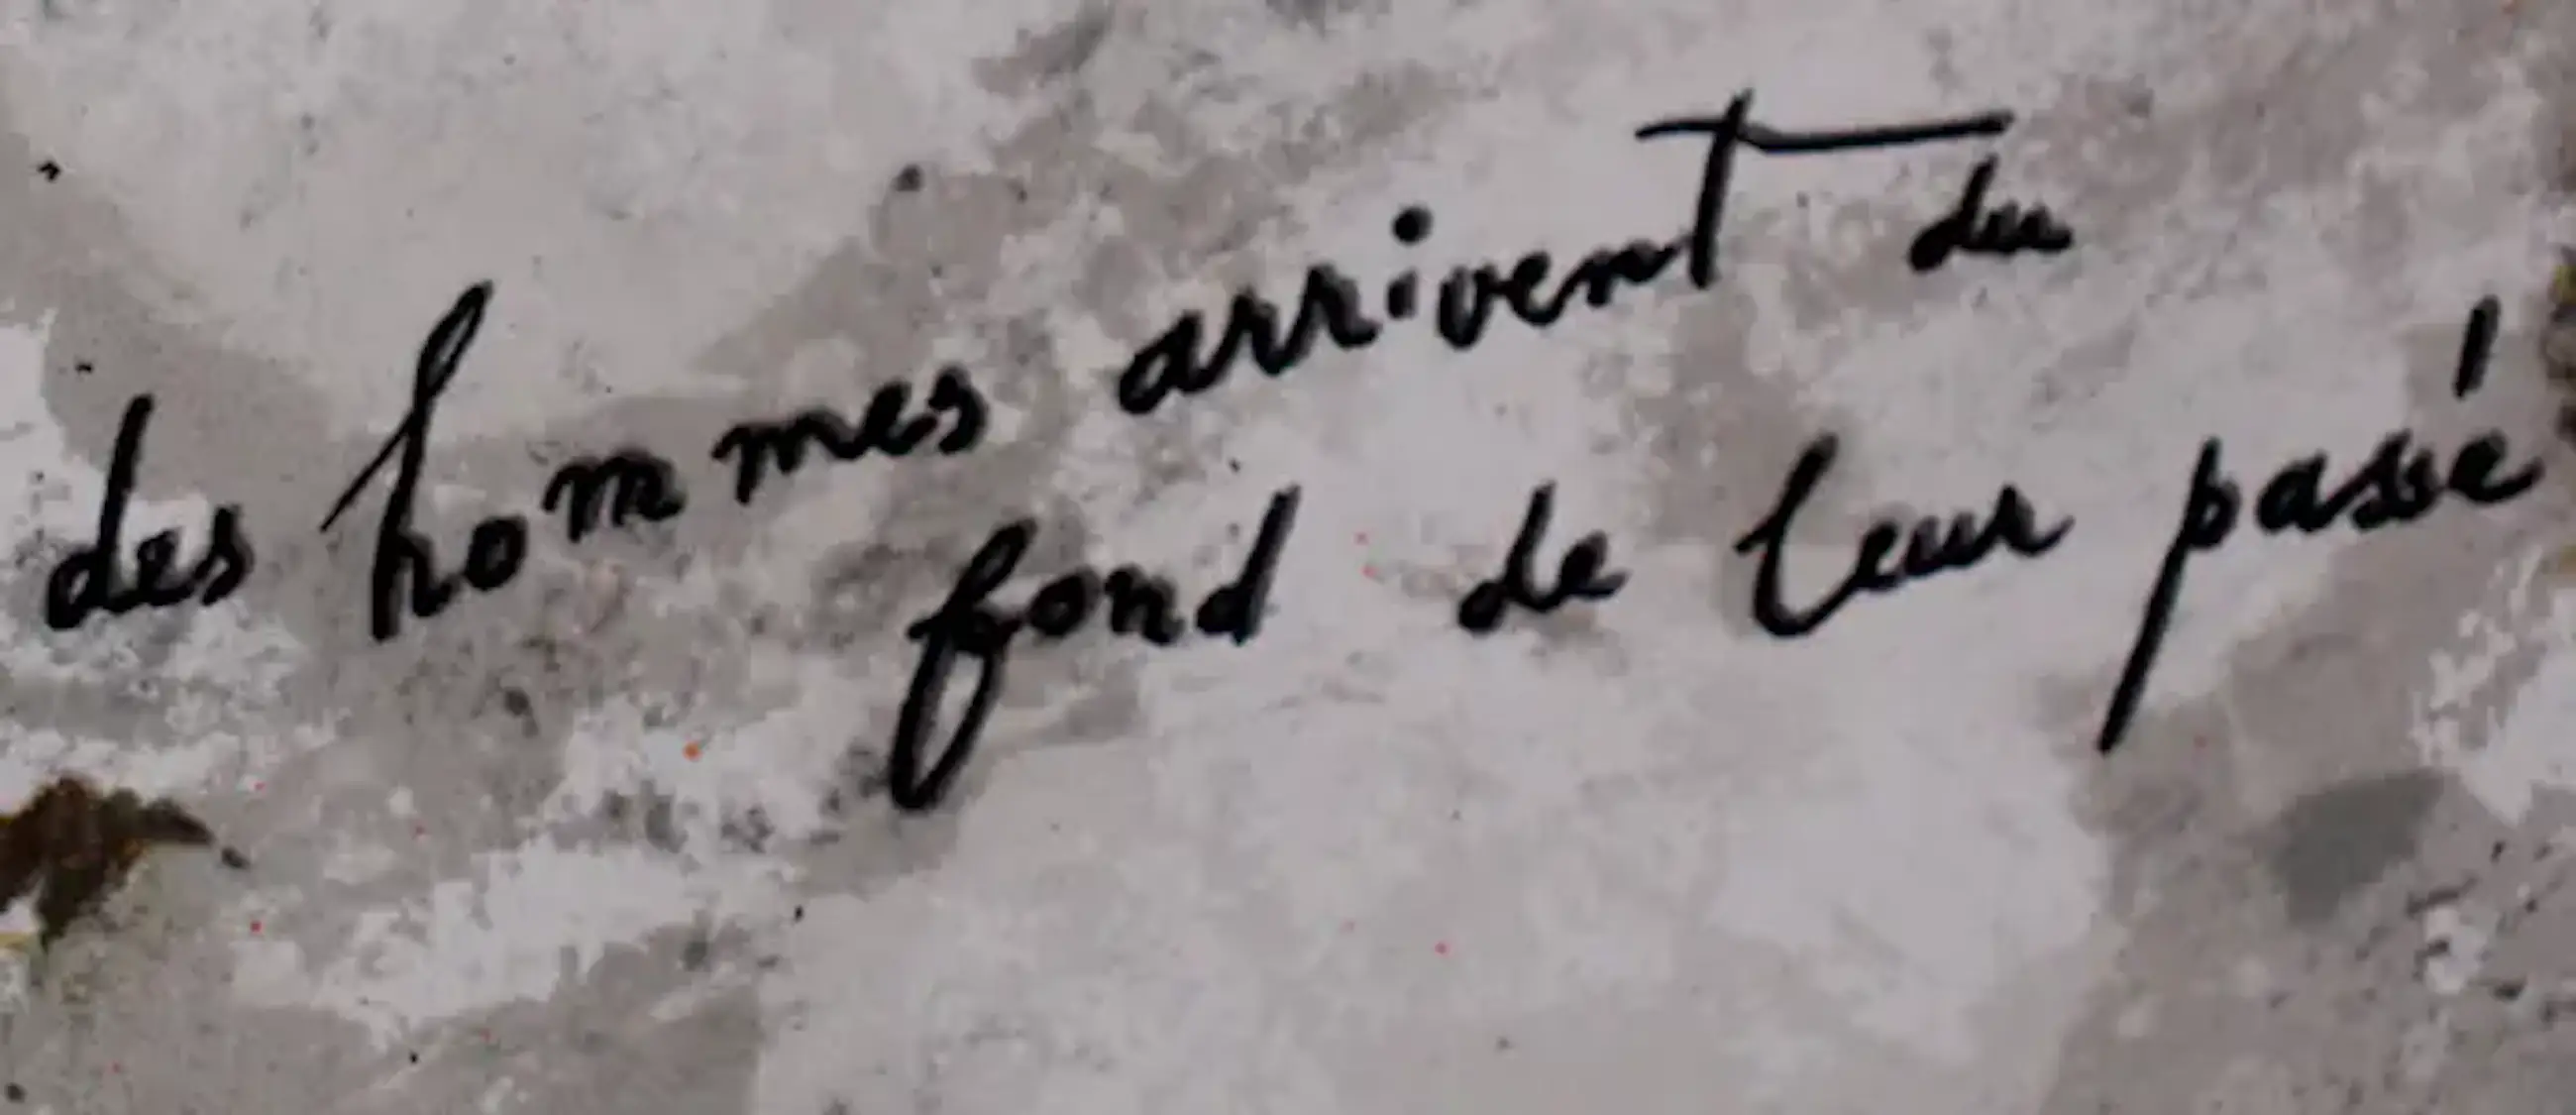 des hommes arrivent du
fond de leur passé